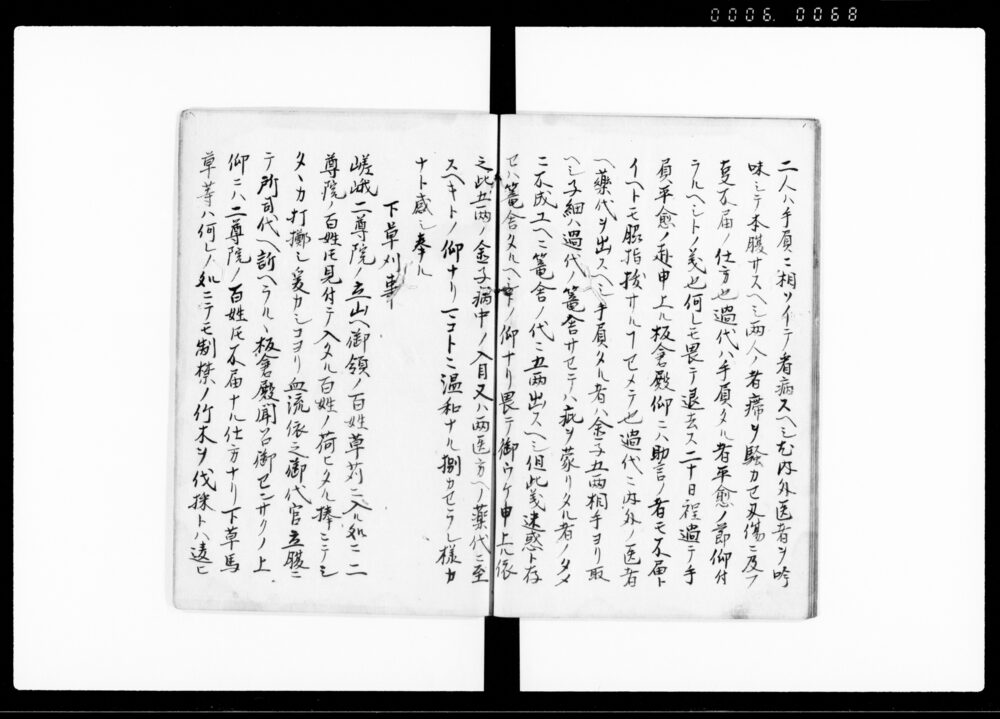 0006.0068
二人ハ手負ニ相ソイテ看病スヘシ尤内外医者ヲ吟
味シテ本腹サスヘシ両人ノ者席ヲ騒カセ刄傷ニ及フ
叓不届ノ仕方也過代ハ手負タル者平愈ノ節仰付
ラルヘシトノ義也何レモ畏テ退去ス二十日程過テ手
負平愈ノ趣申上ル板倉殿仰ニハ助言ノ者モ不届ト
イヘトモ脇指抜サルナセメテ也過代ニ内外ノ医者
ヘ薬代ヲ出スヘシ手負タル者ハ金子五両相手ヨリ取
ヘシ子細ハ過代ノ篭舎サセテハ疵ヲ蒙リタル者ノタメ
ニ不成ユヘニ篭舎ノ代ニ五両出スヘシ但此義迷惑ト存
セハ篭舎タルヘキトノ仰ナリ畏テ御ウケ申上ル依
之此五両ノ金子病中ノ入目又ハ両医方ヘノ薬代ニ至
スヘキトノ仰ナリマコトニ温和ナル捌カセラレ様カ
ナト感シ奉ル
下草刈事
嵯峨二尊院ノ立山ヘ御領ノ百姓草苅ニ入ル処ニ二
尊院ノ百姓共見付テ入タル百姓ノ荷ヒタル捧ニテシ
タヽカ打擲シ爰カシコヨリ血流依之御代官立腹ニ
テ所司代ヘ訴ヘラルヽ板倉殿聞召御センサクノ上
仰ニハ二尊院ノ百姓共不届ナル仕方ナリ下草馬
草等ハ何レノ処ニテモ制禁ノ竹木ヲ伐採トハ違ヒ